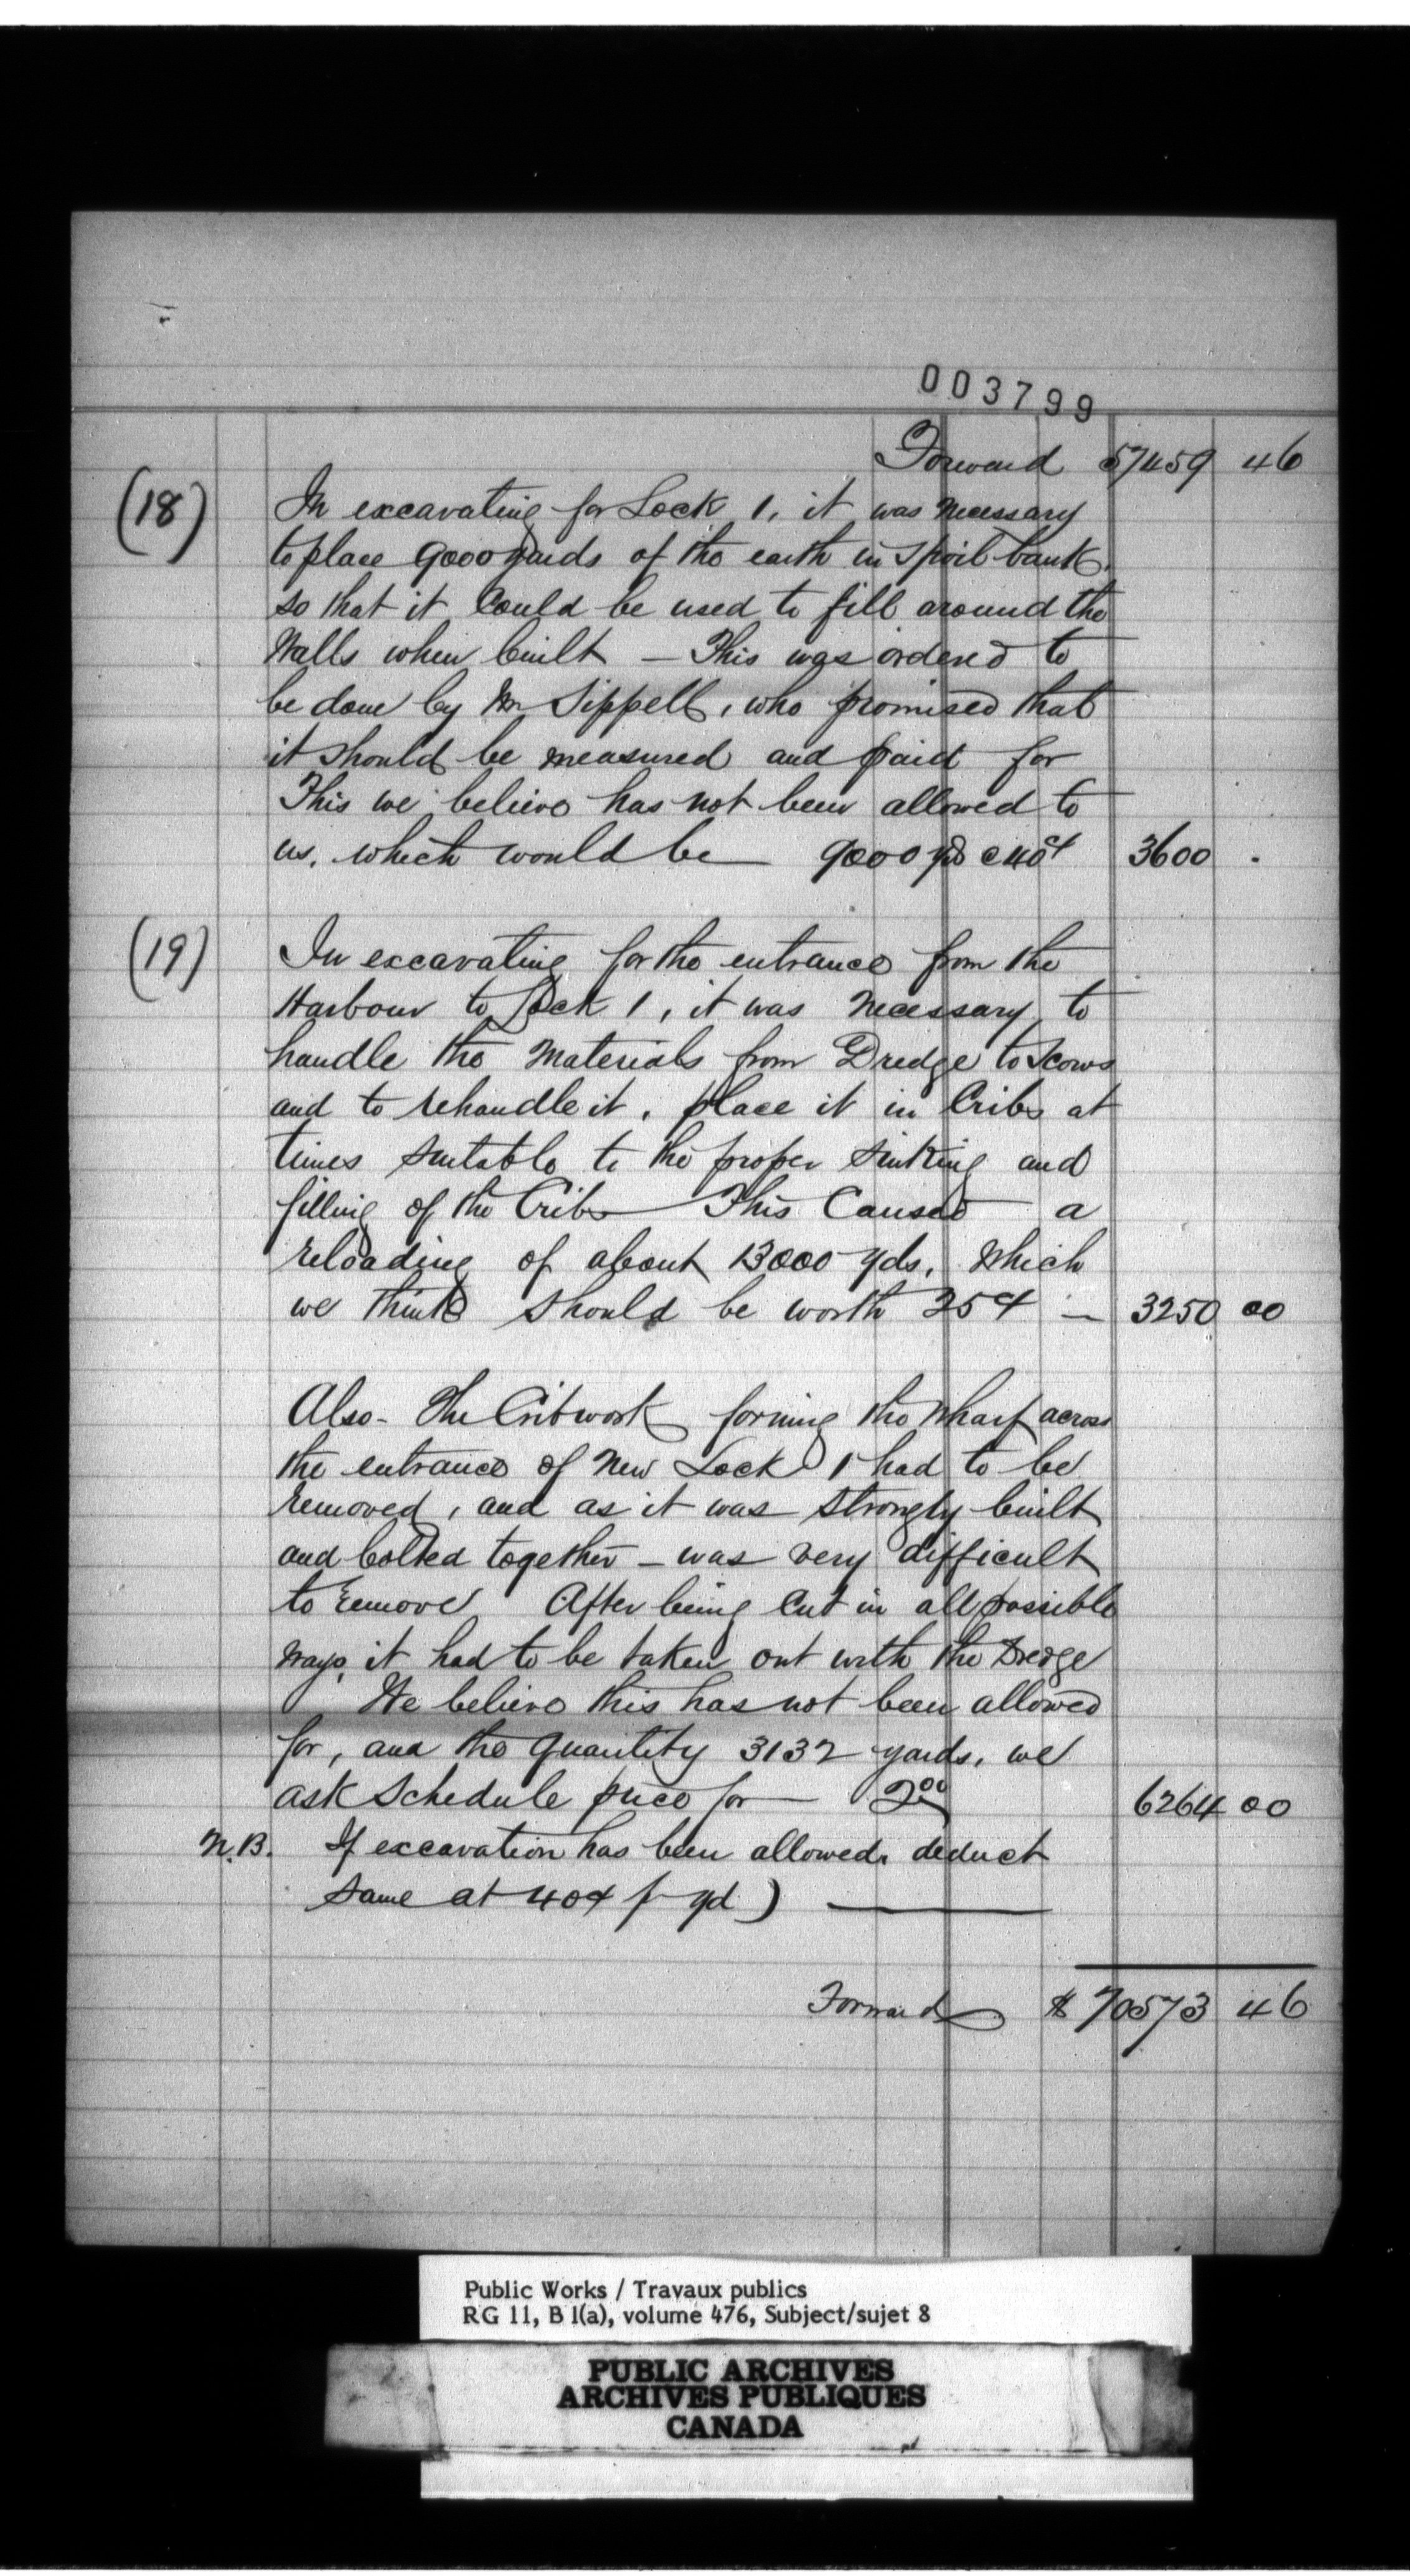 003799
Forward 57459 46
(18) In excavating for Lock 1, it was necessary
to place 9000 yards of the earth in Spoil bank.
so that it Could be used to fill around the
Walls when built — This was ordered to
be done by Mr Sippell, who promised that
it should be measured and paid for
This we believe has not been allowed to
us, which would be 9000 yds @ 40¢ 3600 .
(19) In excavating for the entrance from the
Harbour to Lock 1, it was necessary to
handle the Materials from Dredge to Scows
and to rehandle it, place it in Cribs at
times suitable to the proper sinking and
filling of the Cribs — This Caused a
reloading of about 13000 yds, which
we think should be worth 25¢ — 3250 00
Also - The Cribwork forming the Wharf across
the entrance of New Lock 1 had to be
removed, and as it was strongly built
and bolted together — was very difficult
to remove After being Cut in all possible
ways it had to be taken out with the Dredge
We believe this has not been allowed
for, and the Quantity 3132 yards, we
ask Schedule price for — 2 00 6264 00
N.B. If excavation has been allowed, deduct
same at 40¢ p yd ) —
Forward $ 70573 46
Public Works / Travaux publics
RG 11, B 1(a), volume 476, Subject/sujet 8
PUBLIC ARCHIVES
ARCHIVES PUBLIQUES
CANADA